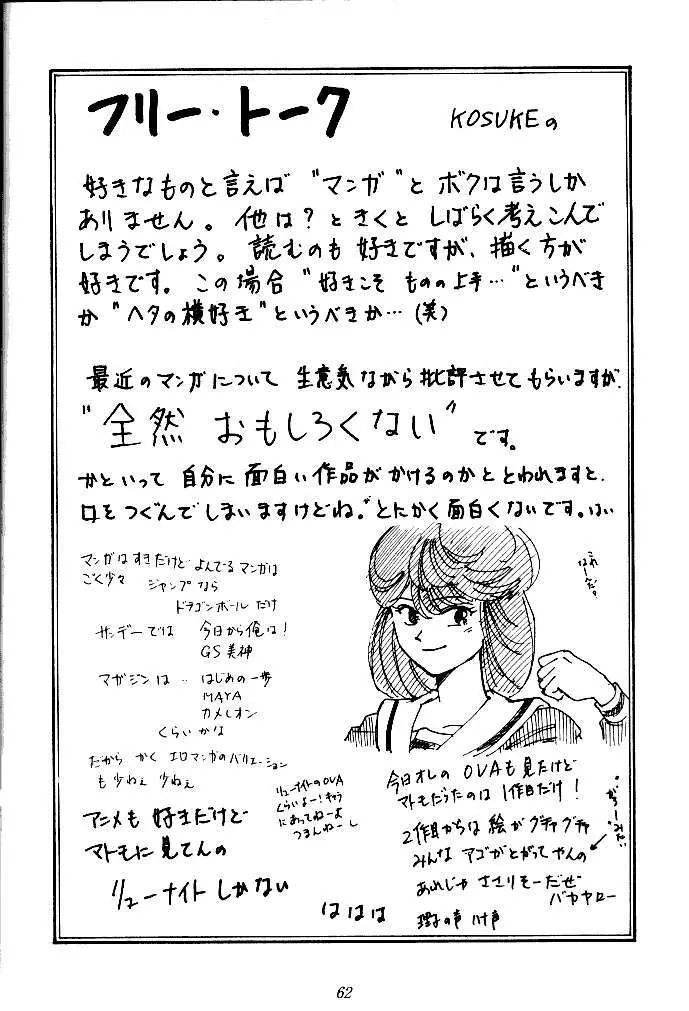 フリー・トーク
KOSUKEの
好きなものと言えば "マンガ"と ボクは言うしか
ありません。他は？ときくと しばらく考えこんで
しまうでしょう。読むのも好きですが、描く方が
好きです。この場合 "好きこそ ものの上手…"というべき
か "ヘタの横好き"というべきか…(笑)
最近のマンガについて 生意気ながら批評させてもらいますが、
"全然 おもしろくない"です。
かといって 自分に面白い作品がかけるのかととわれますと、
口をつぐんでしまいますけどね。とにかく面白くないです。はい
マンガはすきだけど よんでるマンガは
ごく少々 ジャンプなら
ドラゴンボールだけ
サンデーでは 今日から俺は！
GS美神
マガジンは … はじめの一歩
MAYA
カメレオン
くらいかな
だから かく エロマンガのバリエーション
も少ねえ 少ねえ
アニメも 好きだけど
マトモに見てんの
リューナイト しかない
リューナイトのOVA
くらいよー！
にあってねーよ
つまんねーし
ははは
今日オレの OVAも見たけど
マトモだったのは 1作目だけ！
2作目からは 絵がグチャグチャ
みんな アゴがとがってやんの
あれじゃ ささりそーだぜ
バカヤロー
理子の声
62